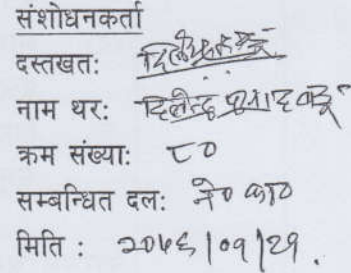 संशोधनकर्ता
दस्तखत:
नाम थर: दिलेन्द्र प्रसाद बडू
क्रम संख्या: ८०
सम्बन्धित दल: ने० का०
मिति : २०७६।०९।२९.